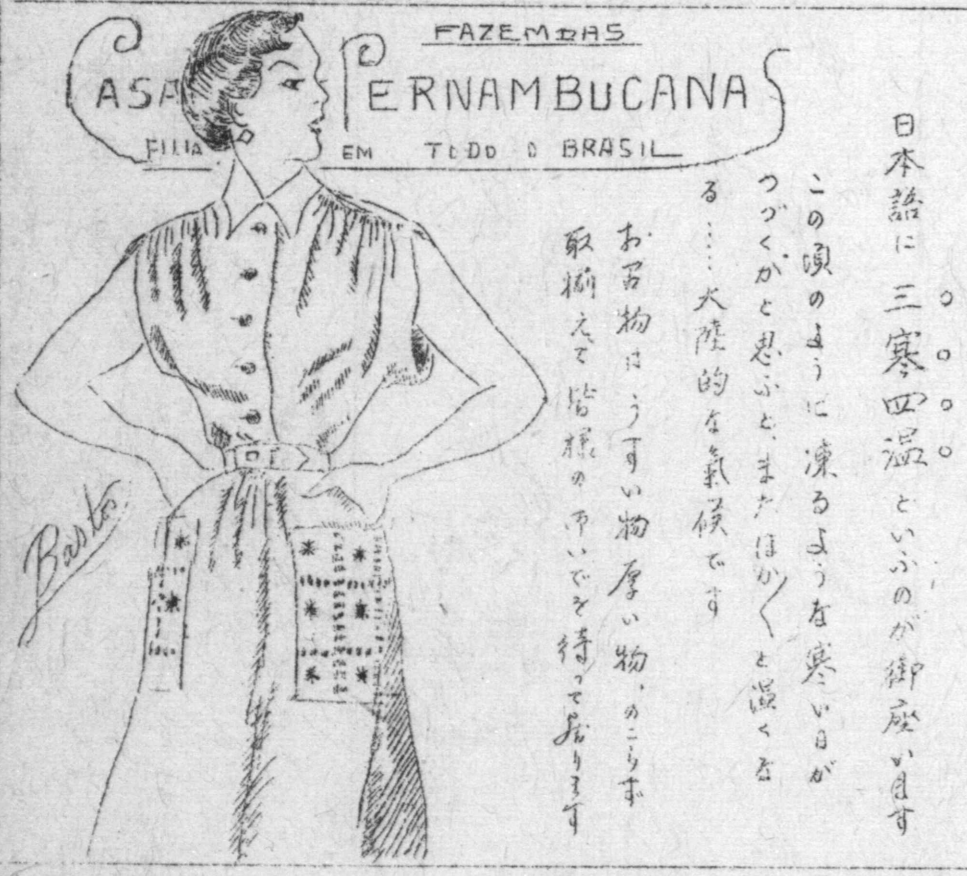 FAZEMDAS
CASA PERNAMBUCANAS
FILIA EM TODO O BRASIL
日本語に三寒四温といふのが御座います
この頃のように凍るような寒い日が
つづくかと思ふと、またほか〱と温くな
る……大陸的な氣候です
お召物はうすい物厚い物、のこらず
取揃えて皆様の御いでを待って居ります
Bastos